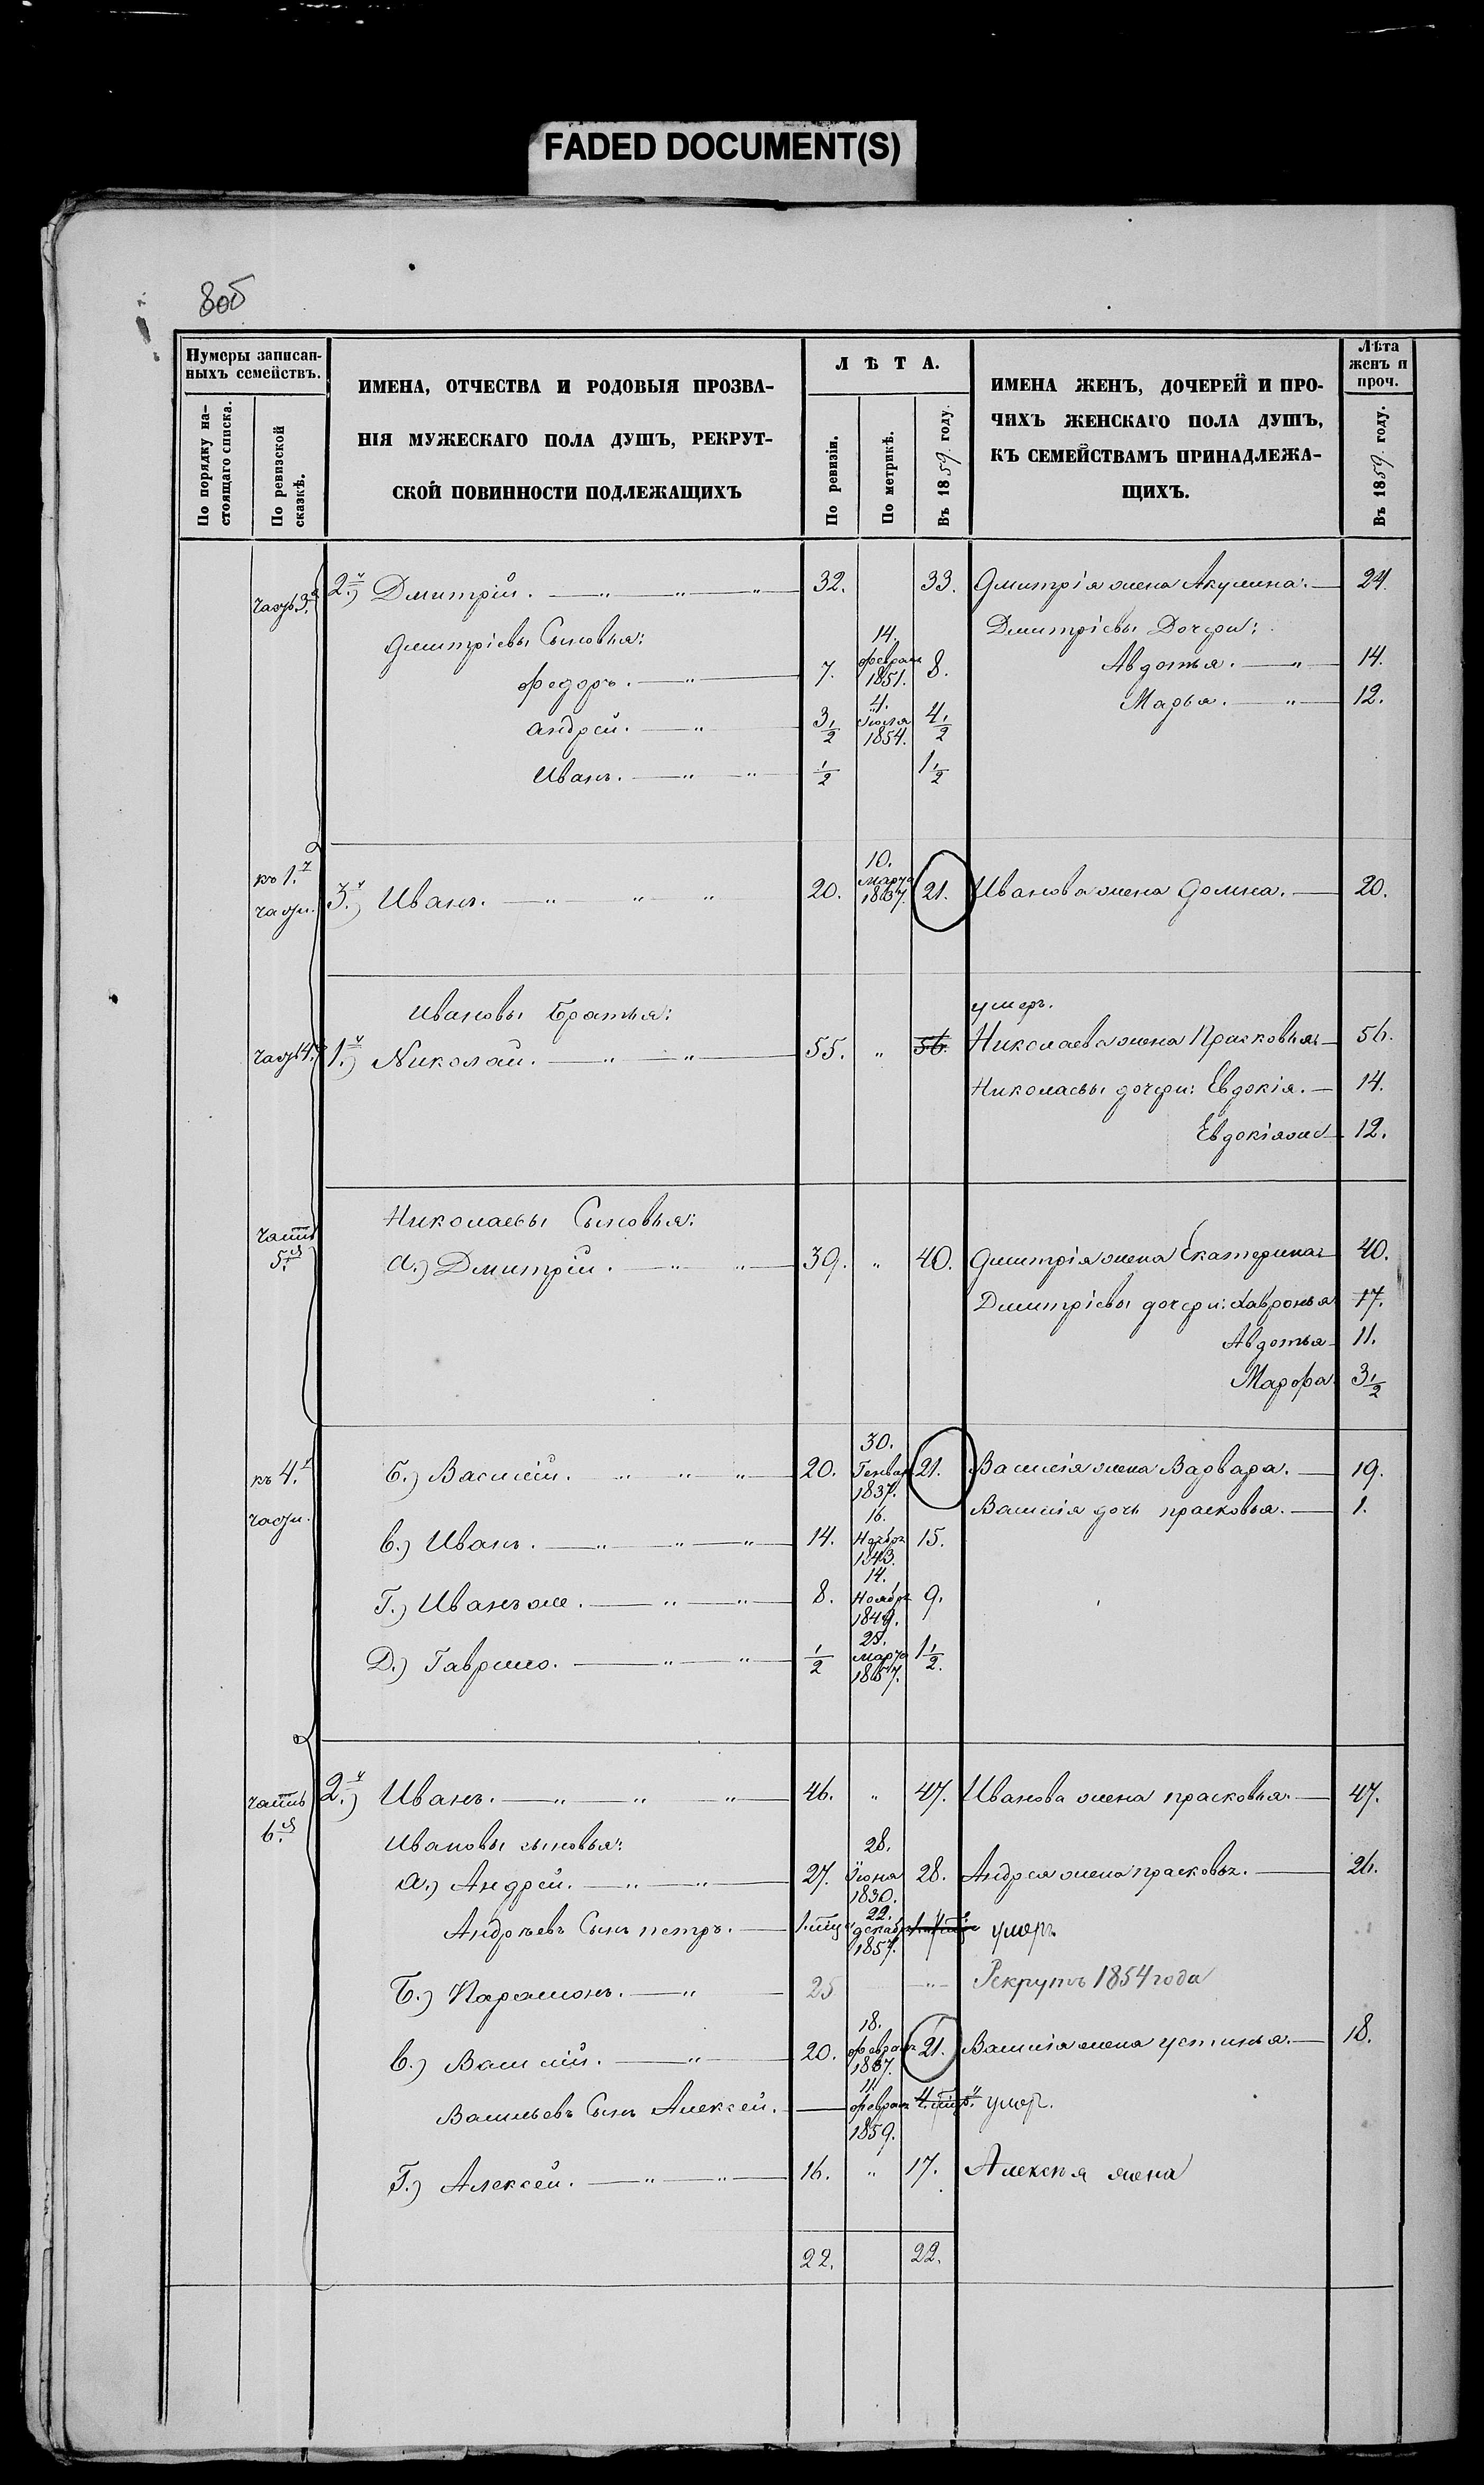 FADED DOCUMENT(S)
80б
Нумеры записан-
ныхъ семействъ.
По порядку на-
стоящаго списка.
По ревизской
сказкѣ.
ИМЕНА, ОТЧЕСТВА И РОДОВЫЯ ПРОЗВА-
НІЯ МУЖЕСКАГО ПОЛА ДУШЪ, РЕКРУТ-
СКОЙ ПОВИННОСТИ ПОДЛЕЖАЩИХЪ
ЛѢТА.
По ревизіи.
По метрикѣ.
Въ 1859 году.
ИМЕНА ЖЕНЪ, ДОЧЕРЕЙ И ПРО-
ЧИХЪ ЖЕНСКАГО ПОЛА ДУШЪ,
КЪ СЕМЕЙСТВАМЪ ПРИНАДЛЕЖА-
ЩИХЪ.
Лѣта
женъ и
проч.
Въ 1859 году.
часть 3.я 2.й) Дмитрій. — „ — „ — „ 32. 33. Дмитрія жена Акулина. — 24.
Дмитріевы Сыновья: Дмитріевы Дочери:
Федоръ. — „ — 7. 14. февраля 1851. 8. Авдотья. — „ — 14.
Андрей. — „ 3 1/2 4. Іюля 1854. 4 1/2 Марья. — „ — 12.
Иванъ. — „ — „ 1/2 1 1/2
къ 1.й
части. 3.й) Иванъ. — „ — „ — „ 20. 10. Марта 1837. 21. Иванова жена Домна. — 20.
Ивановы Братья: умеръ.
часть 4.я 1.й) Николай. — „ — „ — 55. „ 56. Николаева жена Прасковья — 56.
Николаевы дочери: Евдокія. — 14.
Евдокія же — 12.
часть
5.я
Николаевы Сыновья:
а.) Дмитрій. — „ — „ — 39. „ 40. Дмитрія жена Екатерина — 40.
Дмитріевы дочери: Хавронья 17.
Авдотья — 11.
Марфа. 3 1/2
къ 4.й
части.
б.) Василій. — „ — „ — „ — 20. 30. Генваря 1837. 21. Василія жена Варвара. — 19.
Василія дочь прасковья. — 1.
в.) Иванъ. — „ — „ — „ — 14. 16. 1843. 15.
г.) Иванъ же. — „ — „ — 8. 14. Ноября 1849. 9.
Д.) Гаврило. — „ — „ — 1/2 25. Марта 1857. 1 1/2.
часть
6.я
2.й) Иванъ. — „ — „ — „ — 46. „ 47. Иванова жена прасковья. — 47.
Ивановы сыновья:
а.) Андрей. — „ — „ — 27. 28. Іюня 1830. 28. Андрея жена прасковья. — 26.
Андрѣевъ Сынъ петръ. — 22. декабря 1857. умеръ
Б.) Парамонъ. — „ — 25 — „ — Рекрутъ 1854 года
в.) Василій. — „ — 20. 18. февраля 1837. 21. Василія жена устинья. — 18.
Васильевъ Сынъ Алексей. — 11 февраля 1859. умер.
Г.) Алексей. — „ — „ — 16. „ 17. Алексѣя жена
22. 22.